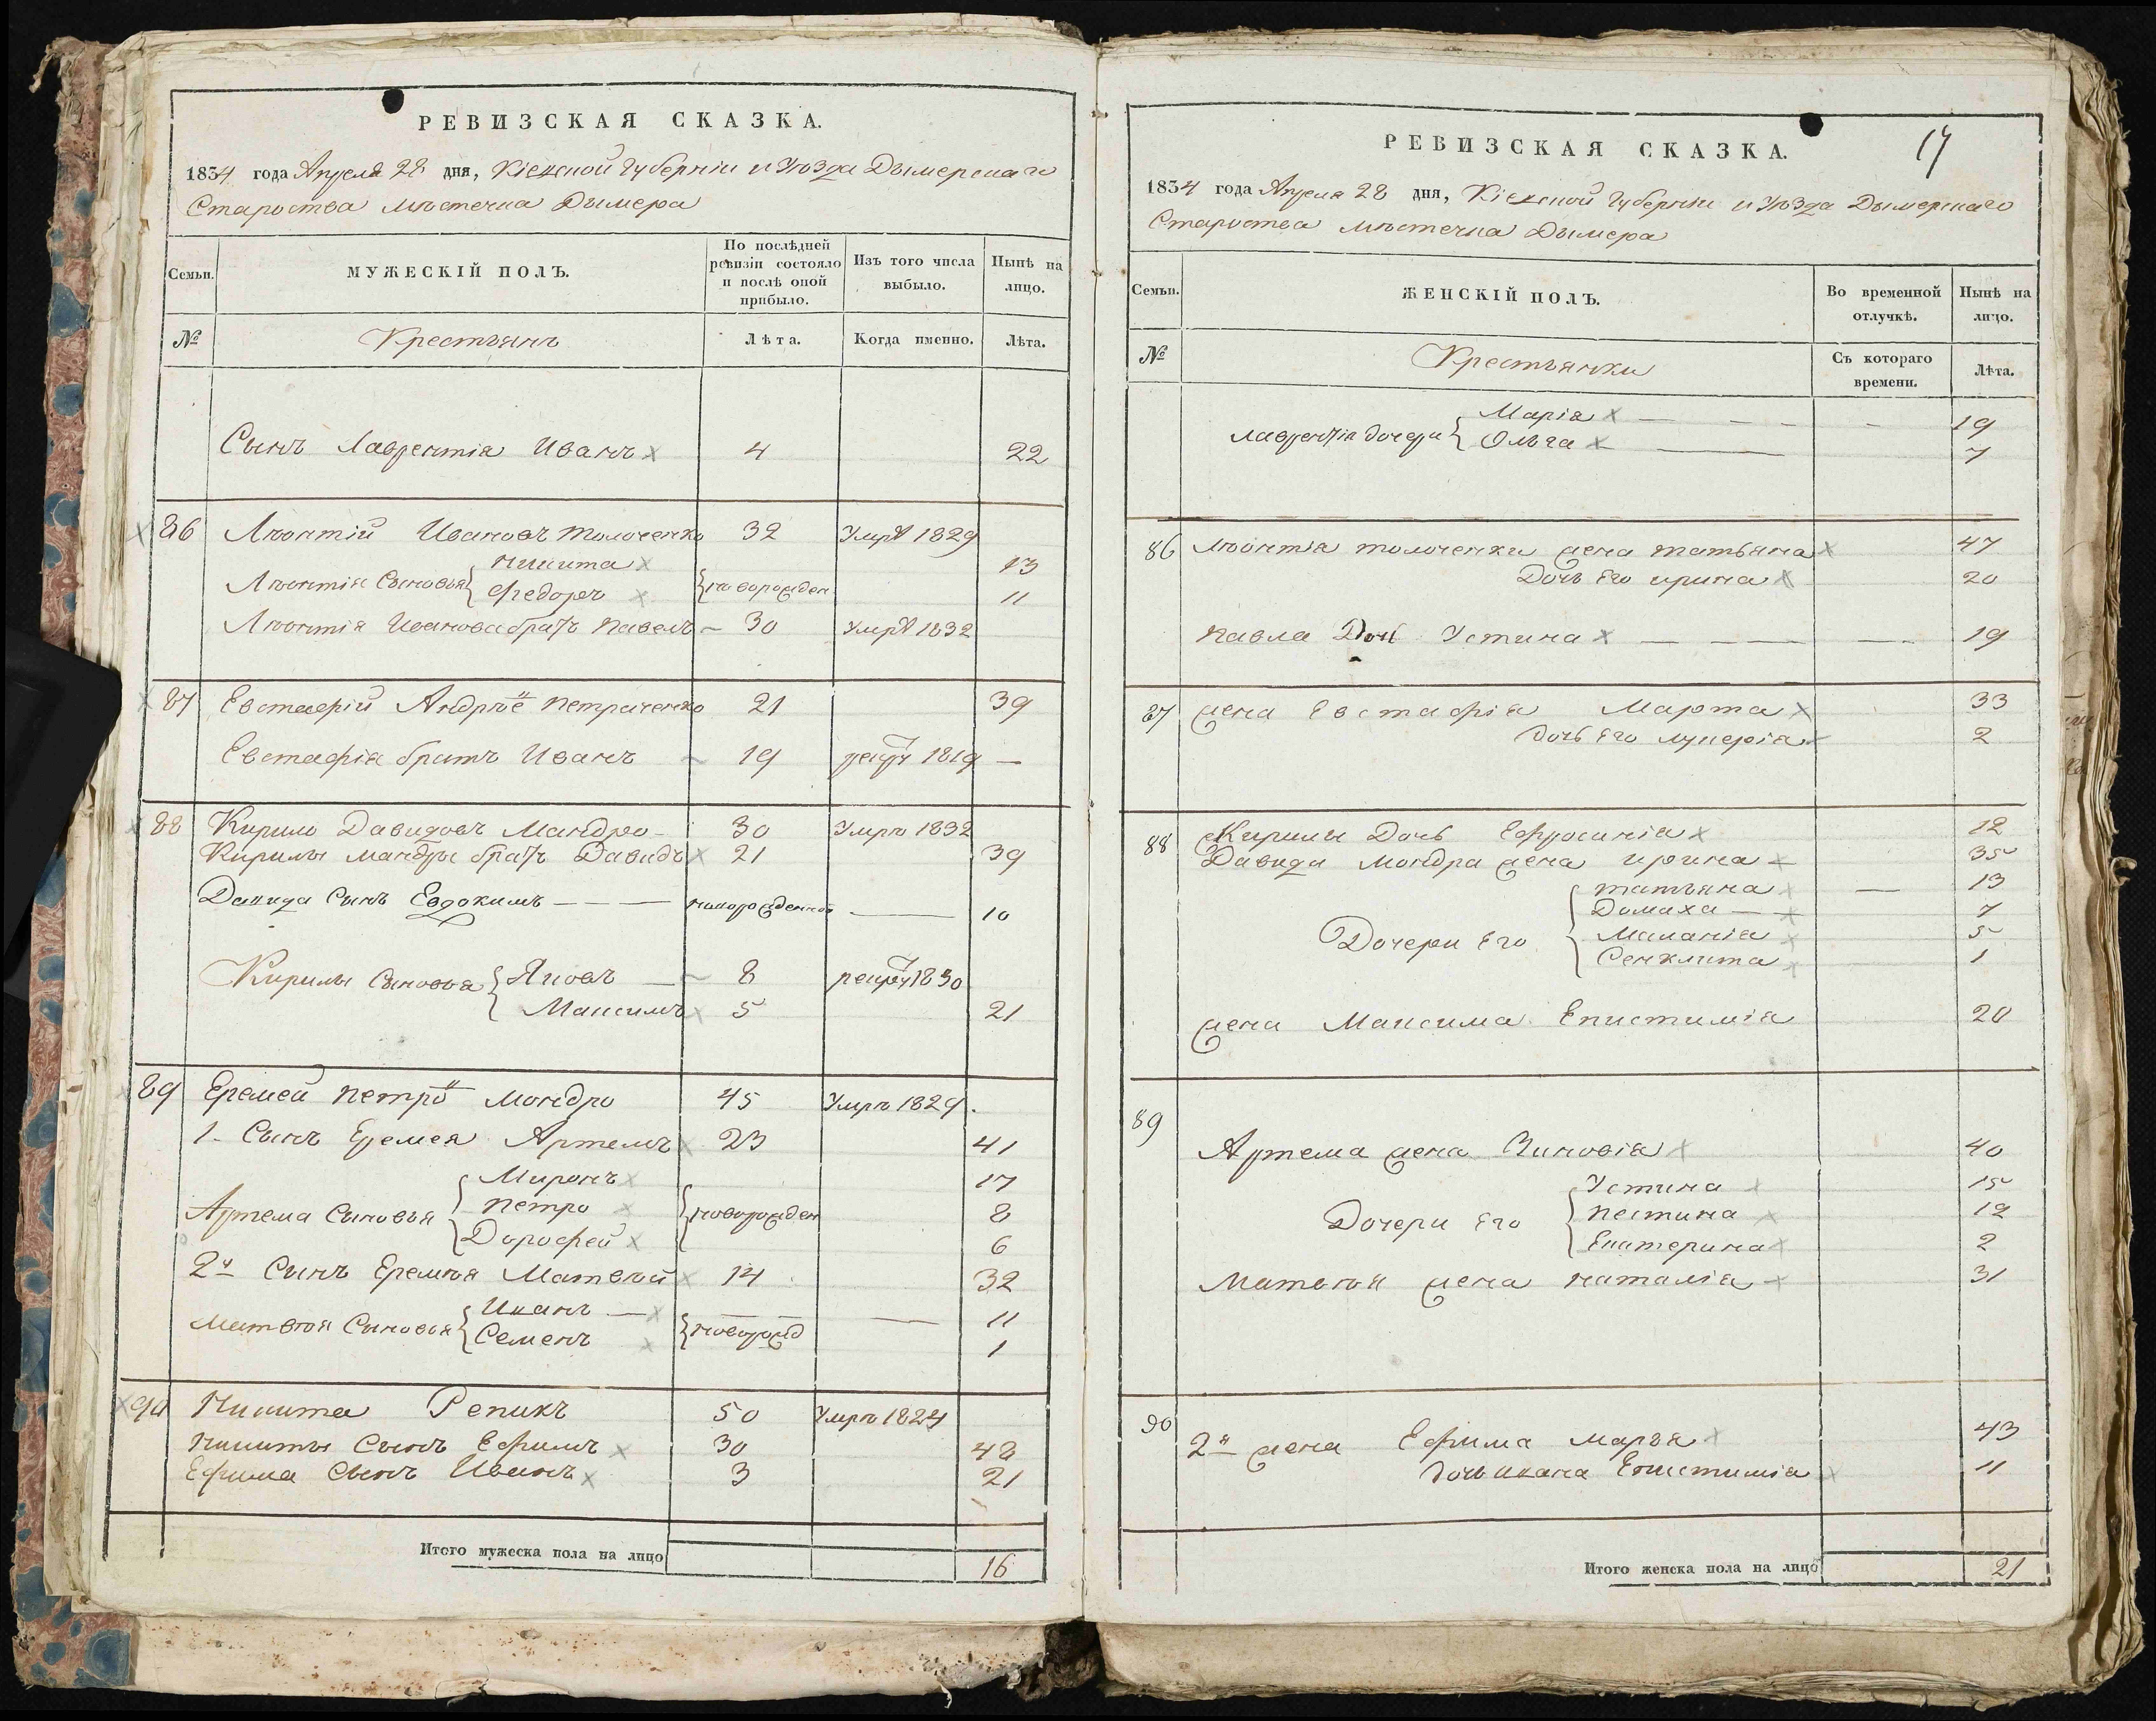 РЕВИЗСКАЯ СКАЗКА.
1834 года Апреля 28 дня, Кіевской Губерніи и Уѣзда Дымерскаго
Староства мѣстечка Дымера
Семьи.
МУЖЕСКІЙ ПОЛЪ.
По послѣдней ревизіи состояло и послѣ оной прибыло.
Изъ того числа выбыло.
Нынѣ на лицо.
№
Крестьянъ
Лѣта.
Когда именно.
Лѣта.
Сынъ Лаврентія Иванъ 4 22
86 Лѣонтій Ивановъ Толоченко 32 Умрѣ 1829
Никита 13
Лѣонтія Сыновья Федоръ новорожден 11
Лѣонтія Иванова братъ Павелъ 30 Умрѣ 1832
87 Евстафій Андрѣё Петраченко 21 39
Евстафія братъ Иванъ 19 рекр 1819 —
88 Кирило Давидовъ Мандро 30 Умрѣ 1832
Кирилы Мандры братъ Давидъ 21 39
Давида Сынъ Евдокимъ — — — новорожденной — 10
Кирилы Сыновья Яковъ — 8 рекр 1830
Максимъ 5 21
89 Еремей Петро Мондро 45 Умрѣ 1829.
1. Сынъ Еремея Артемъ 23 41
Миронъ 17
Артема Сыновья Петро новорожден 8
Дорофей 6
2й Сынъ Еремѣя Матвѣй 14 32
Иванъ — 11
Матвѣя Сыновья Семенъ новорожд 1
90 Никита Репикъ 50 Умрѣ 1824
Никиты Сынъ Ефимъ 30 48
Ефима Сынъ Иванъ 3 21
Итого мужеска пола на лицо 16
17
РЕВИЗСКАЯ СКАЗКА.
1834 года Апреля 28 дня, Кіевской Губерніи и Уѣзда Дымерскаго
Староства мѣстечка Дымера
Семьи.
ЖЕНСКІЙ ПОЛЪ.
Во временной отлучкѣ.
Нынѣ на лицо.
№
Крестьянки
Съ котораго времени.
Лѣта.
Марія — — — — 19
Лаврентія дочери Ольга — 7
86 Лѣонтія Толоченки жена Татьяна 47
Дочь Его Ирина 20
Павла Дочь Устина — — — — 19
87 жена Евстафія Марта 33
Дочь Его Лукерія 2
88 Кирилы Дочь Ефросинія 12
Давида Мондра жена Ирина 35
Татьяна — 13
Домаха — 7
Дочери Его Маланія 5
Сенклита 1
жена Максима Епистимія 20
89
Артема жена Зиновія 40
Устина 15
Дочери Его Пестина 12
Екатерина 2
Матвѣя жена Наталія 31
90 2я жена Ефима Марья 43
Дочь Ивана Епистимія 11
Итого женска пола на лицо 21